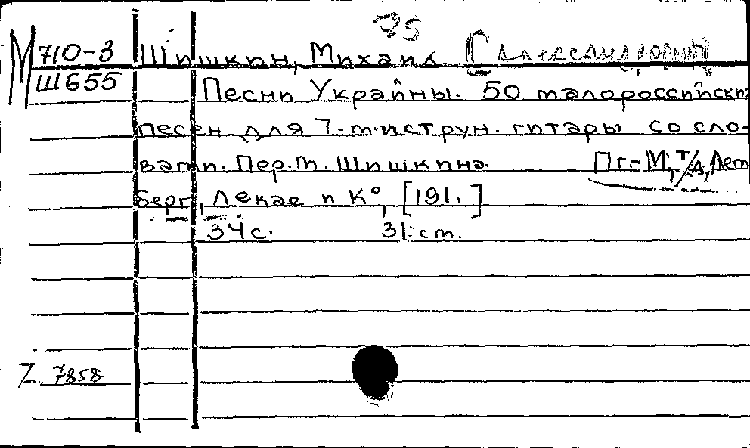 35
М 710-3 Шишкин, Михаил [Александрович
Ш655 Песни Украйны. 50 малороссийски
песен для 7-т-иструн. гитары со сло-
вами. Пер. М. Шишкина. Пг.-М., Т/Д, Лет
берг, Лекае и К°, [191. ]
34 с. 31 ст.
Z. 7858